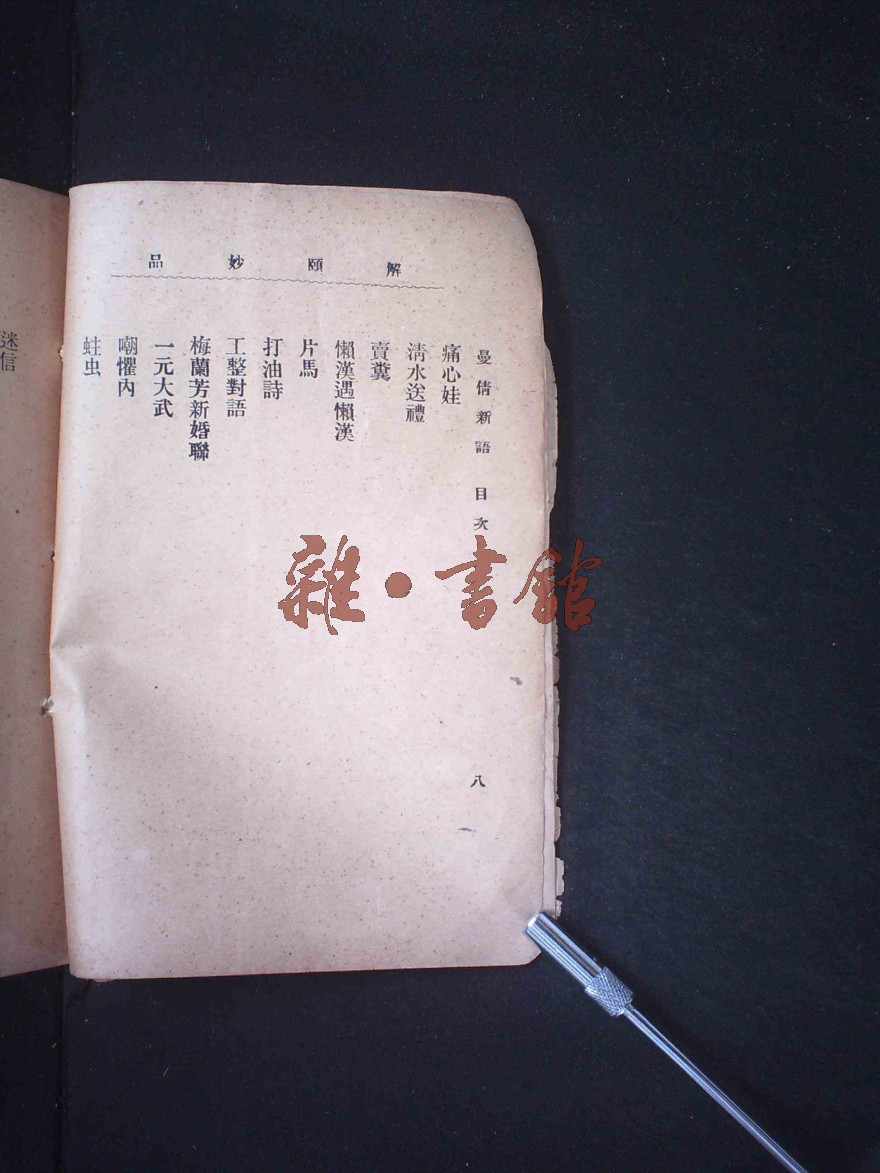 解頤妙品
曼倩新語 目次
八
痛心娃
清水送禮
賣糞
懶漢遇懶漢
片馬
打油詩
工整對語
梅蘭芳新婚聯
一元大武
嘲懼內
蛀虫
迷信
雜·書館